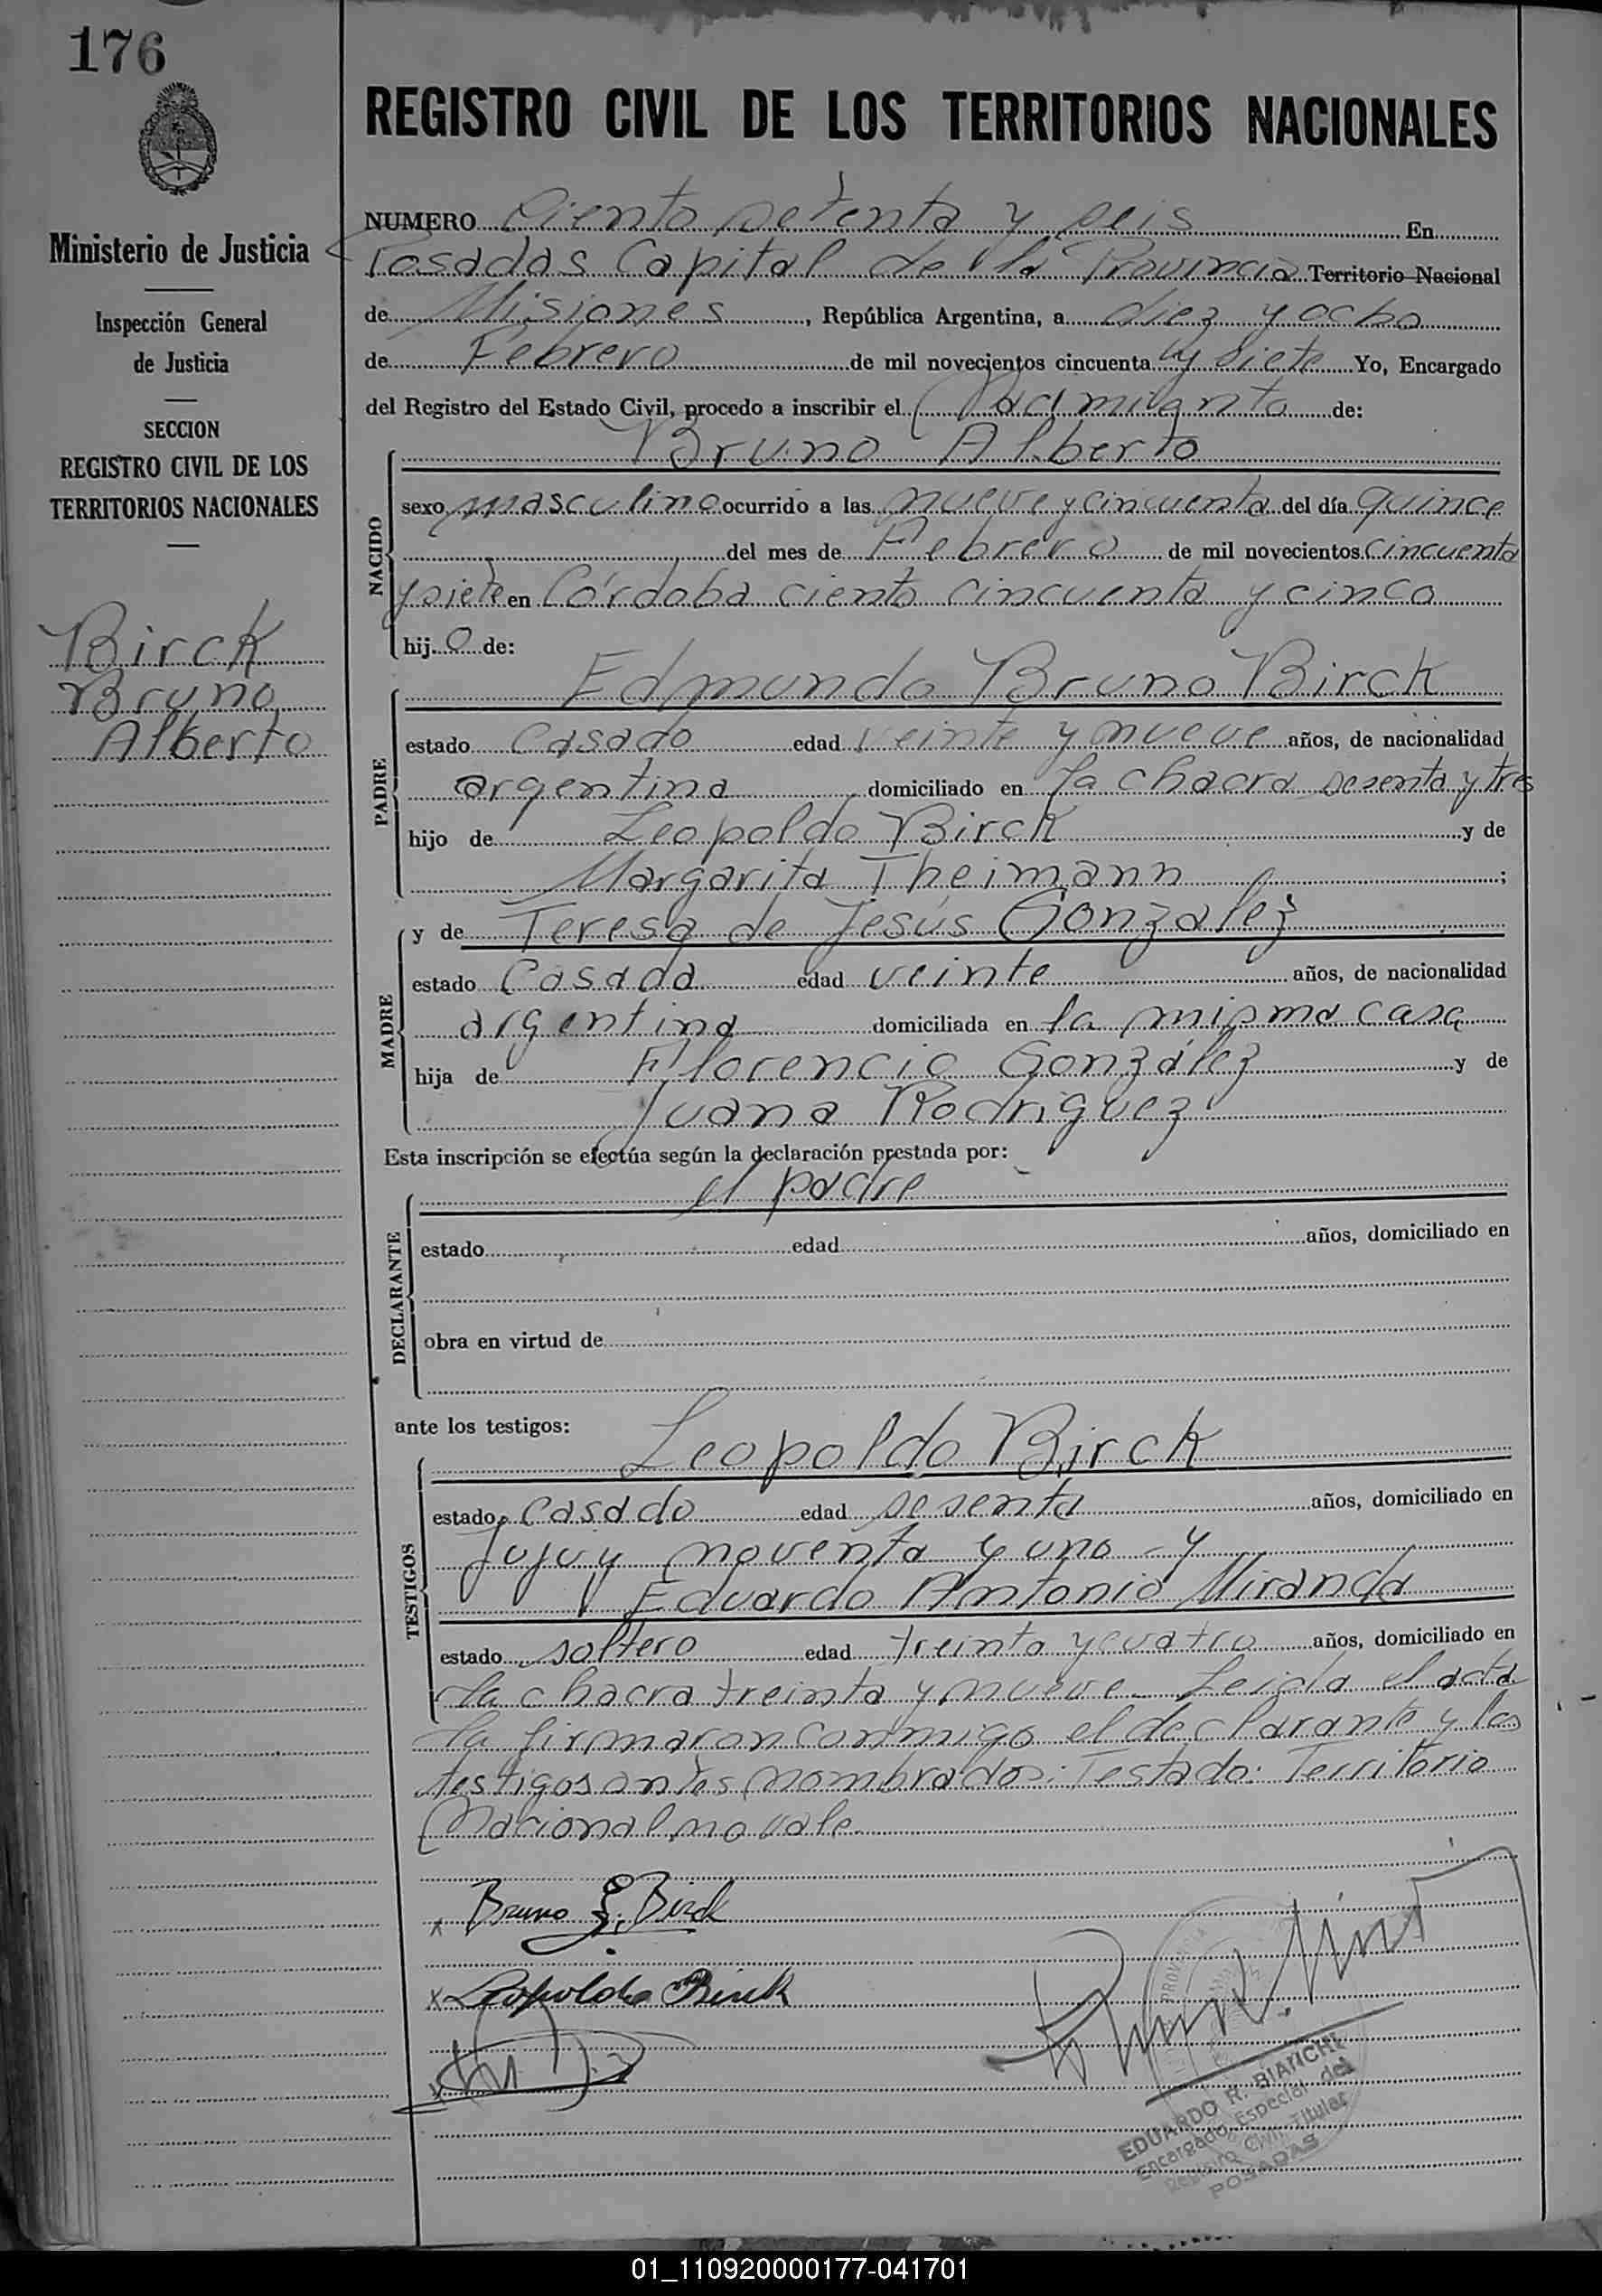 176
Ministerio de Justicia
Inspección General
de Justicia
SECCION
REGISTRO CIVIL DE LOS
TERRITORIOS NACIONALES
Birck
Bruno
Alberto
REGISTRO CIVIL DE LOS TERRITORIOS NACIONALES
NUMERO Ciento setenta y seis En
Posadas Capital de la Provincia Territorio Nacional
de Misiones, República Argentina, a diez y ocho
de Febrero de mil novecientos cincuenta y siete Yo, Encargado
del Registro del Estado Civil, procedo a inscribir el Nacimiento de:
Bruno Alberto
NACIDO
sexo masculino ocurrido a las nueve y cincuenta del día quince
del mes de Febrero de mil novecientos cincuenta
y siete en Córdoba ciento cincuenta y cinco
hijo de:
Edmundo Bruno Birck
PADRE
estado Casado edad veinte y nueve años, de nacionalidad
argentina domiciliado en la chacra sesenta y tres
hijo de Leopoldo Birck y de
Margarita Theimann;
y de Teresa de Jesús González
MADRE
estado Casada edad veinte años, de nacionalidad
argentina domiciliada en la misma casa
hija de Florencio González y de
Juana Rodriguez
Esta inscripción se efectúa según la declaración prestada por:
el padre
DECLARANTE
estado edad años, domiciliado en
obra en virtud de
ante los testigos:
Leopoldo Birck
TESTIGOS
estado Casado edad sesenta años, domiciliado en
Jujuy noventa y uno - y
Eduardo Antonio Miranda
estado soltero edad treinta y cuatro años, domiciliado en
la chacra treinta y nueve. Leida el acta
la firmaron conmigo el declarante y los
testigos antes nombrados: Testado: Territorio
Nacional no vale.
x Bruno E. Birck
x Leopoldo Birck
x
EDUARDO R. BIANCHI
Encargado Especial del
Registro Civil Titular
POSADAS
01_110920000177-041701